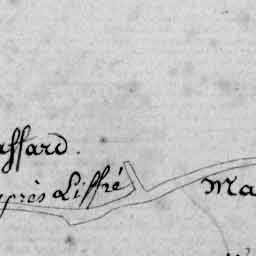 affard.
après Liffré
Ma